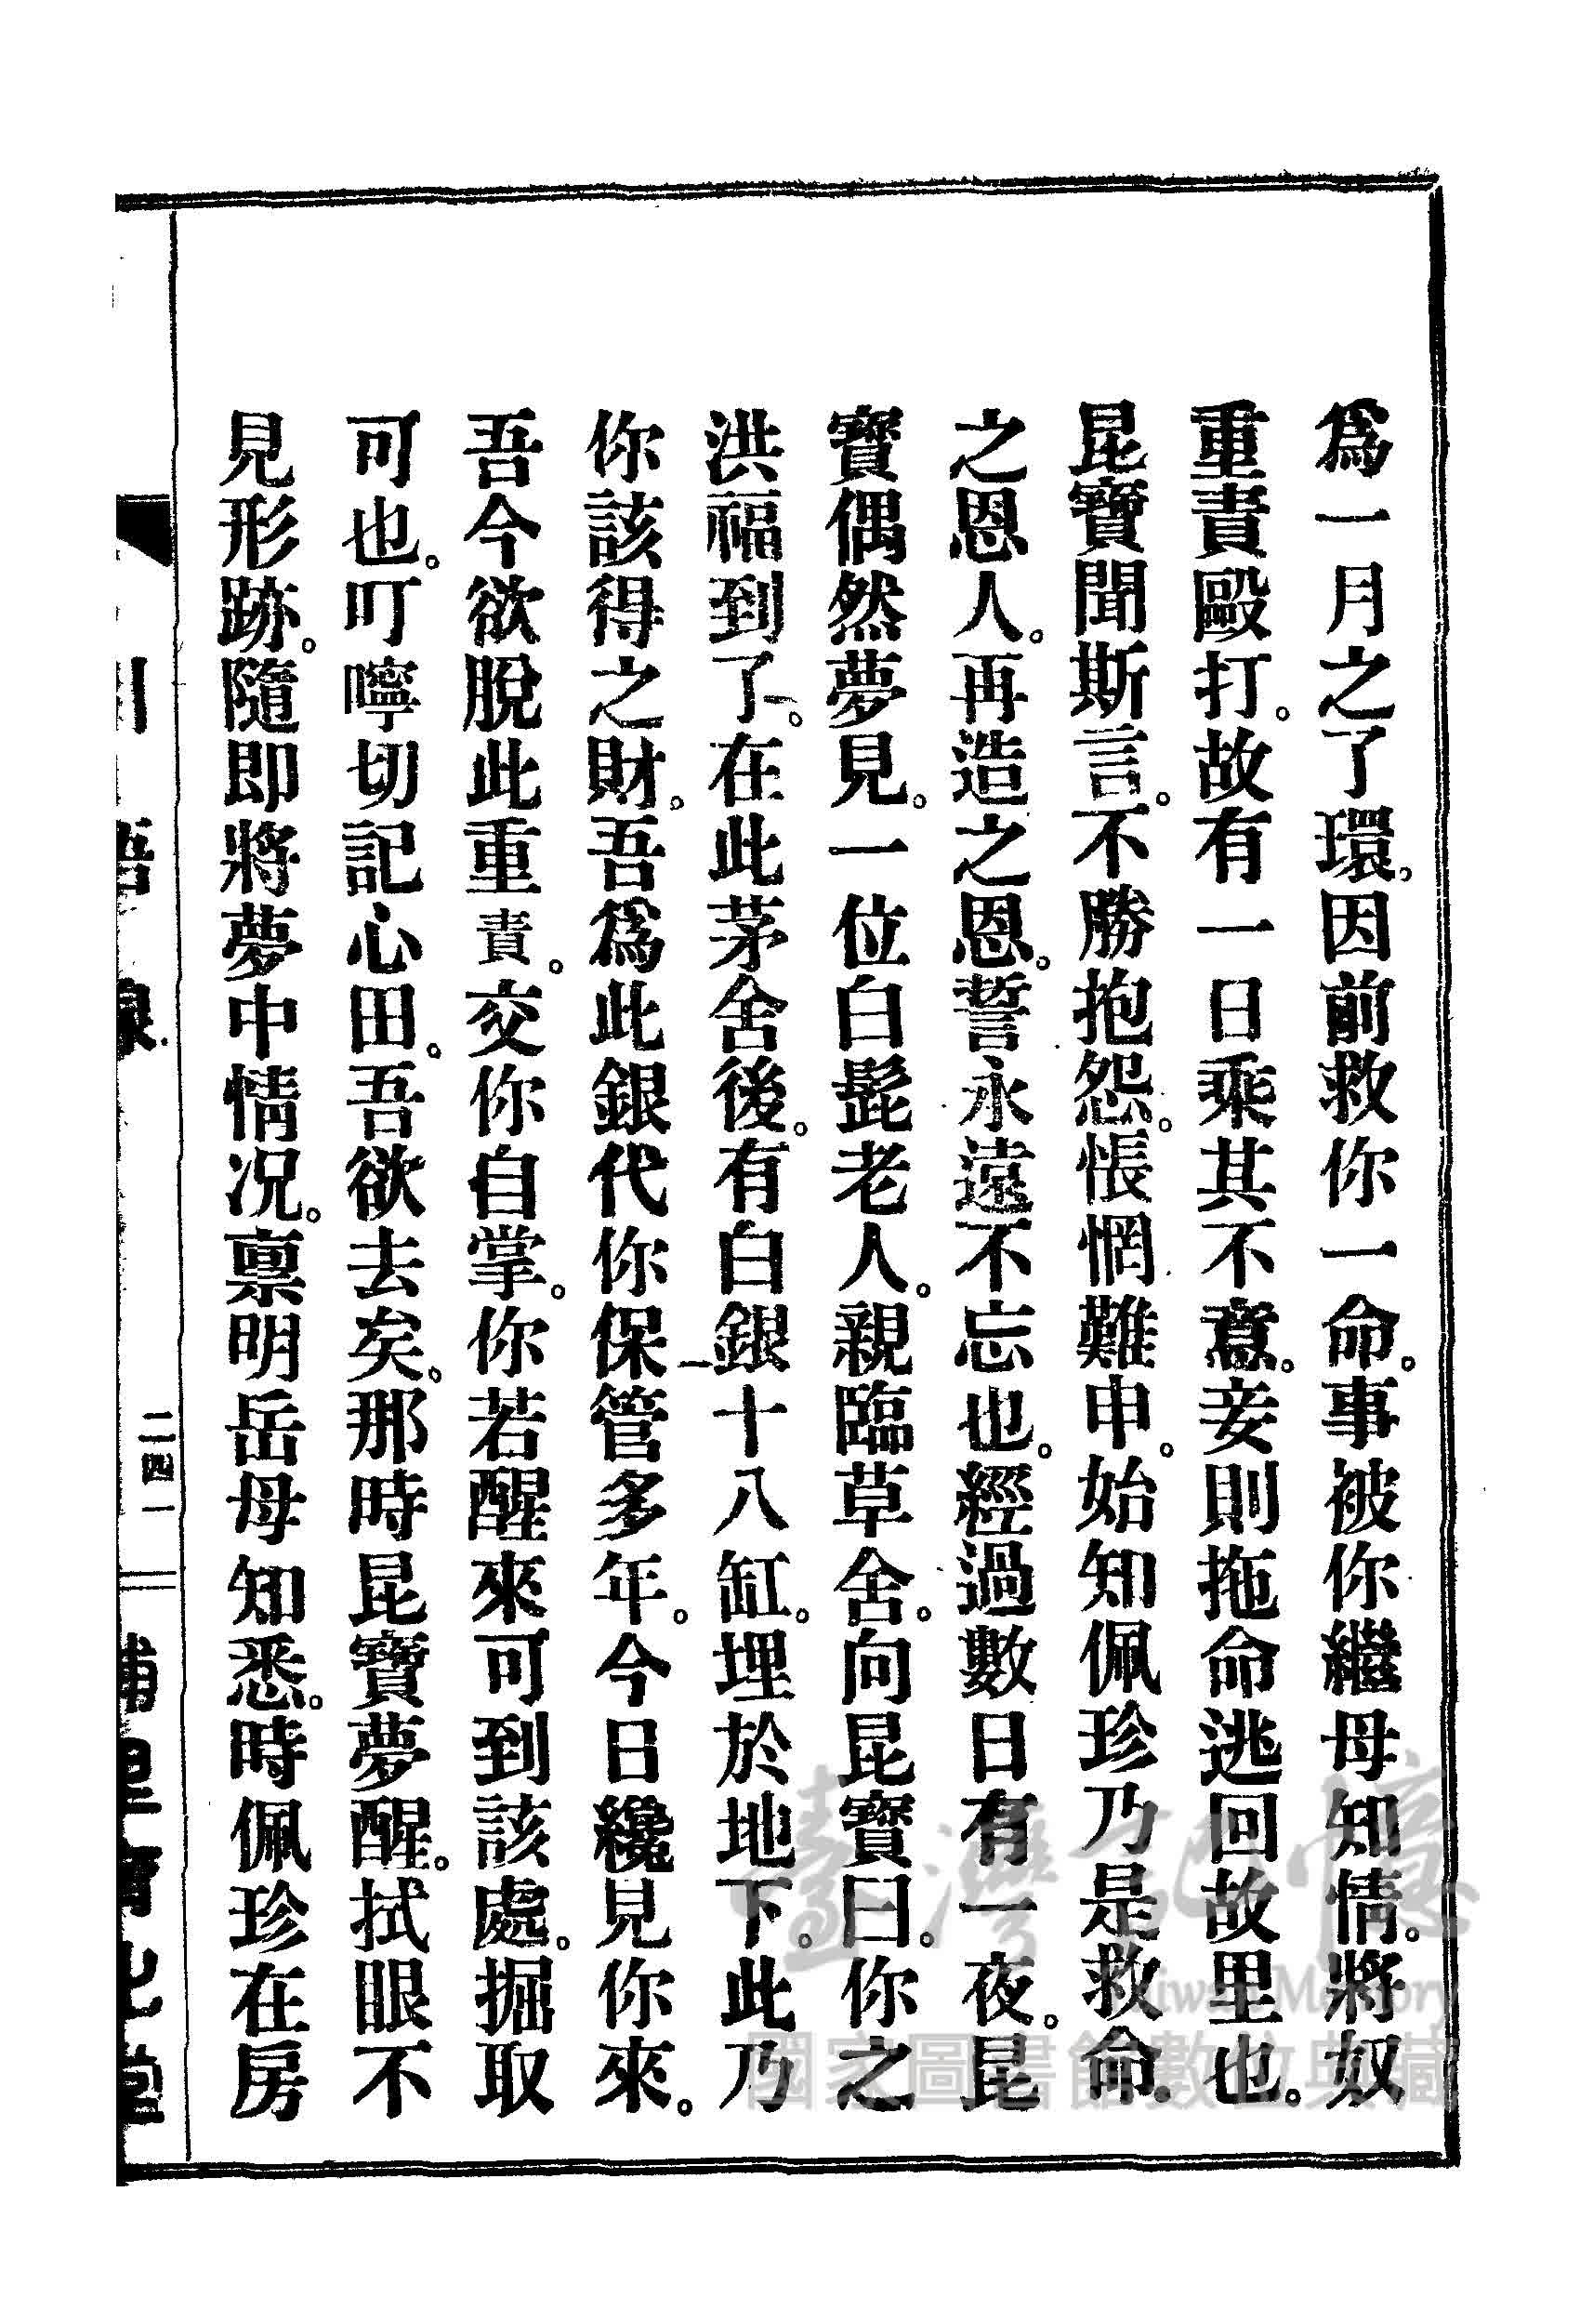 爲一月之了環。因前救你一命。事被你繼母知情。將奴
重責毆打。故有一日乘其不意。妾則拖命逃回故里也。
昆寶聞斯言。不勝抱怨。悵惘難申。始知佩珍乃是救命。
之恩人。再造之恩。誓永遠不忘也。經過數日有一夜。昆
寶偶然夢見。一位白髭老人。親臨草舍。向昆寶曰。你之
洪福到了。在此茅舍後。有白銀十八缸。埋於地下。此乃
你該得之財。吾爲此銀代你保管多年。今日纔見你來。
吾今欲脫此重責。交你自掌。你若醒來可到該處。掘取
可也。叮嚀切記心田。吾欲去矣。那時昆寶夢醒。拭眼不
見形跡。隨即將夢中情况。禀明岳母知悉。時佩珍在房
二四一
臺灣記憶
Taiwan Memory
國家圖書館數位典藏